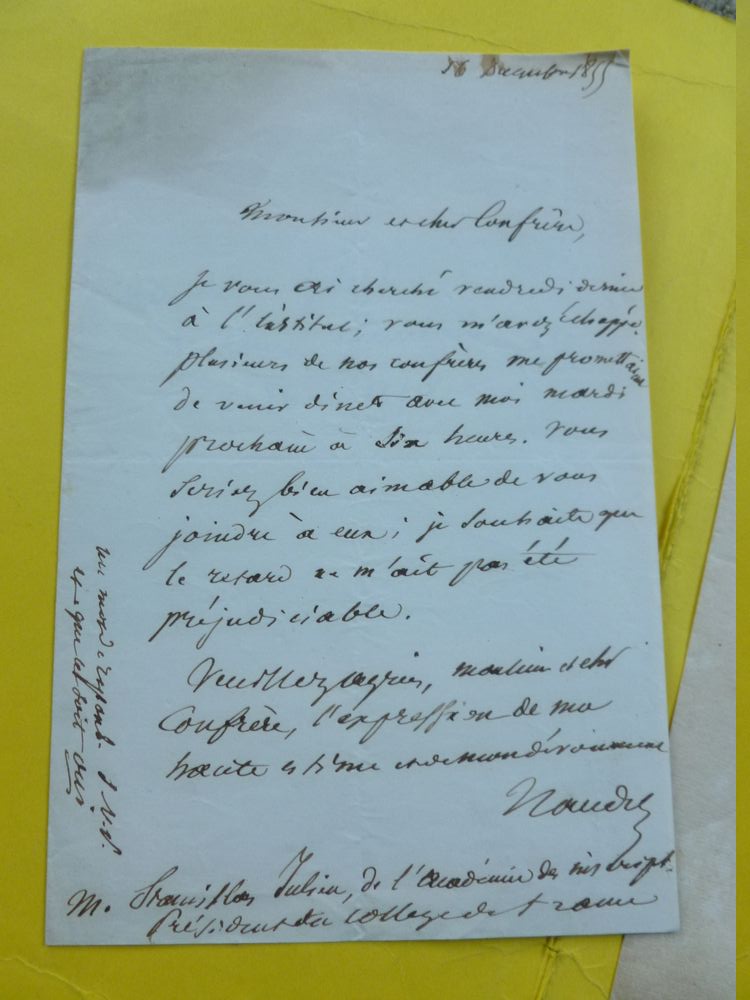 16 Décembre 1855
Monsieur et cher Confrère,
Je vous ai cherché vendredi dernier
à l'Institut; vous m'avez échappé.
plusieurs de nos confrères me promettaient
de venir diner avec moi mardi
prochain à six heures. Vous
seriez bien aimable de vous
joindre à eux; je souhaite que
le retard ne m'ait pas été
préjudiciable.
Veuillez agréer, monsieur et cher
Confrère, l'expression de ma
haute estime et de mon dévouement
Naudet
M. Stanislas Julien, de l'académie des inscript.
Président du collège de France
un mot de répons. S. V. P.
et que ce soit oui